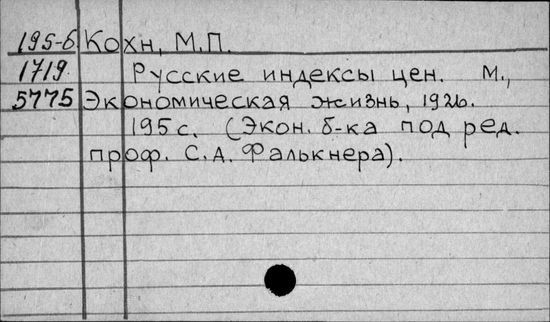 195-б Кохн, М.П.
1719 Русские индексы цен. М.,
5775 Экономическая жизнь, 1926.
195 с. (Экон. б-ка под ред.
проф. С.Д. Фалькнера).